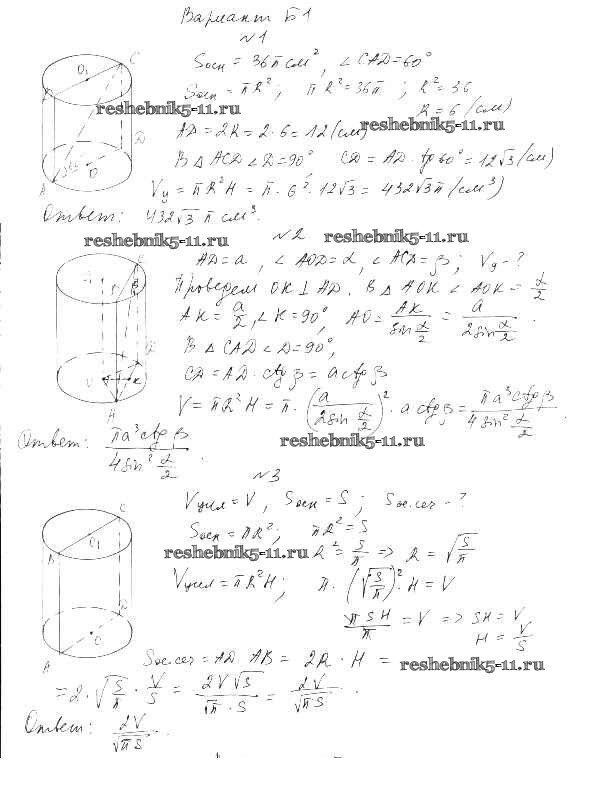 Вариант Б1
№1
Sосн = 36π см², ∠CAD = 60°
Sосн = πR²; πR² = 36π; R² = 36
R = 6 (см)
reshebnik5-11.ru
reshebnik5-11.ru
AD = 2R = 2·6 = 12 (см)
В △ ACD ∠D = 90° CD = AD · tg 60° = 12√3 (см)
Vц = πR²H = π · 6² · 12√3 = 432√3π (см³)
Ответ: 432√3 π см³.
reshebnik5-11.ru №2 reshebnik5-11.ru
AD = a, ∠AOD = α, ∠ACD = β; Vц - ?
Проведем OK ⊥ AD. В △ AOK ∠AOK = α/2
AK = a/2, ∠K = 90°, AO = AK/sin α/2 = a/2sin α/2.
В △ CAD ∠D = 90°,
CD = AD · ctg β = a ctg β
V = πR²H = π · (a/2sin α/2)² · a ctg β = πa³ctg β/4sin² α/2
Ответ: πa³ctg β/4sin² α/2.
reshebnik5-11.ru
№3
Vцил = V, Sосн = S; Sос.сеч - ?
Sосн = πR²; πR² = S
reshebnik5-11.ru R² = S/π => R = √S/π
Vцил = πR²H; π · (√S/π)² · H = V
πSH/π = V => SH = V,
H = V/S
Sос.сеч = AD · AB = 2R · H =
reshebnik5-11.ru
= 2 · √S/π · V/S = 2V√S/√π · S = 2V/√πS.
Ответ: 2V/√πS.